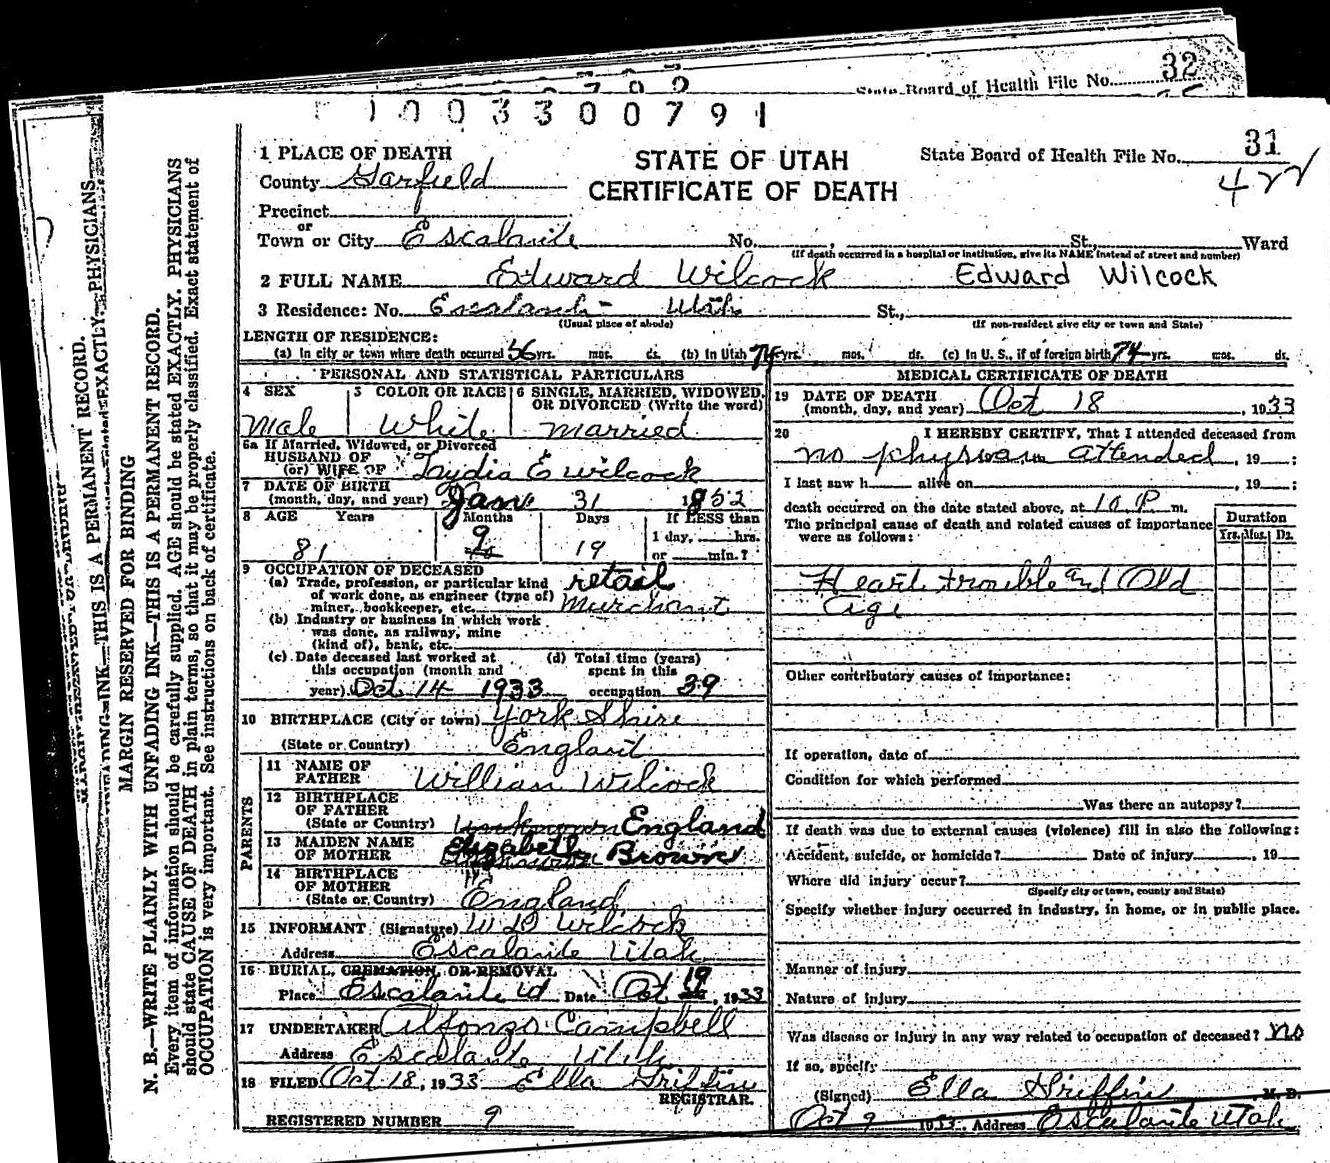 32
State Board of Health File No.
1003300791
31
1 PLACE OF DEATH
STATE OF UTAH
State Board of Health File No.
422
County Garfield
CERTIFICATE OF DEATH
Precinct
or
Town or City Escalante No. , St., Ward
(If death occurred in a hospital or institution, give its NAME instead of street and number)
2 FULL NAME Edward Wilcock Edward Wilcock
3 Residence: No. Escalante - Utah St.,
(Usual place of abode) (If non-resident give city or town and State)
LENGTH OF RESIDENCE:
(a) In city or town where death occurred 56 yrs. mos. ds. (b) In Utah 74 yrs. mos. ds. (c) In U. S., if of foreign birth 74 yrs. mos. ds.
PERSONAL AND STATISTICAL PARTICULARS
4 SEX 5 COLOR OR RACE 6 SINGLE, MARRIED, WIDOWED, OR DIVORCED (Write the word)
Male White Married
6a If Married, Widowed, or Divorced
HUSBAND OF
(or) WIFE OF Lydia E Wilcock
7 DATE OF BIRTH
(month, day, and year) Jan 31 1852
8 AGE Years Months Days If LESS than
1 day, hrs.
81 9 19 or min.?
9 OCCUPATION OF DECEASED
(a) Trade, profession, or particular kind retail
of work done, as engineer (type of)
miner, bookkeeper, etc. Merchant
(b) Industry or business in which work
was done, as railway, mine
(kind of), bank, etc.
(c) Date deceased last worked at (d) Total time (years)
this occupation (month and spent in this
year) Oct 14 1933 occupation 39
10 BIRTHPLACE (City or town) York Shire
(State or Country) England
PARENTS
11 NAME OF
FATHER William Wilcock
12 BIRTHPLACE
OF FATHER
(State or Country) Unknown England
13 MAIDEN NAME
OF MOTHER Elizabeth Brown
14 BIRTHPLACE
OF MOTHER
(State or Country) England
15 INFORMANT (Signature) W D Wilcock
Address Escalante Utah
16 BURIAL, CREMATION, OR REMOVAL
Place Escalante Ut Date Oct 19, 1933
17 UNDERTAKER Alfonzo Campbell
Address Escalante Utah
18 FILED Oct 18, 1933 Ella Griffin
REGISTRAR.
REGISTERED NUMBER 9
MEDICAL CERTIFICATE OF DEATH
19 DATE OF DEATH
(month, day, and year) Oct 18, 1933
20 I HEREBY CERTIFY, That I attended deceased from
no physician attended, 19 ;
I last saw h alive on , 19 ;
death occurred on the date stated above, at 10 P m.
The principal cause of death and related causes of importance
were as follows:
Duration
Yrs. Mos. Ds.
Heart trouble and Old
age
Other contributory causes of importance:
If operation, date of
Condition for which performed
Was there an autopsy?
If death was due to external causes (violence) fill in also the following:
Accident, suicide, or homicide? Date of injury , 19
Where did injury occur?
(Specify city or town, county and State)
Specify whether injury occurred in industry, in home, or in public place.
Manner of injury
Nature of injury
Was disease or injury in any way related to occupation of deceased? no
If so, specify
(Signed) Ella Griffin M. D.
Oct 9 1933 Address Escalante Utah
MARGIN RESERVED FOR BINDING
N. B.—WRITE PLAINLY WITH UNFADING INK—THIS IS A PERMANENT RECORD.
Every item of information should be carefully supplied. AGE should be stated EXACTLY. PHYSICIANS
should state CAUSE OF DEATH in plain terms, so that it may be properly classified. Exact statement of
OCCUPATION is very important. See instructions on back of certificate.
INK—THIS IS A PERMANENT RECORD.
EXACTLY. PHYSICIANS